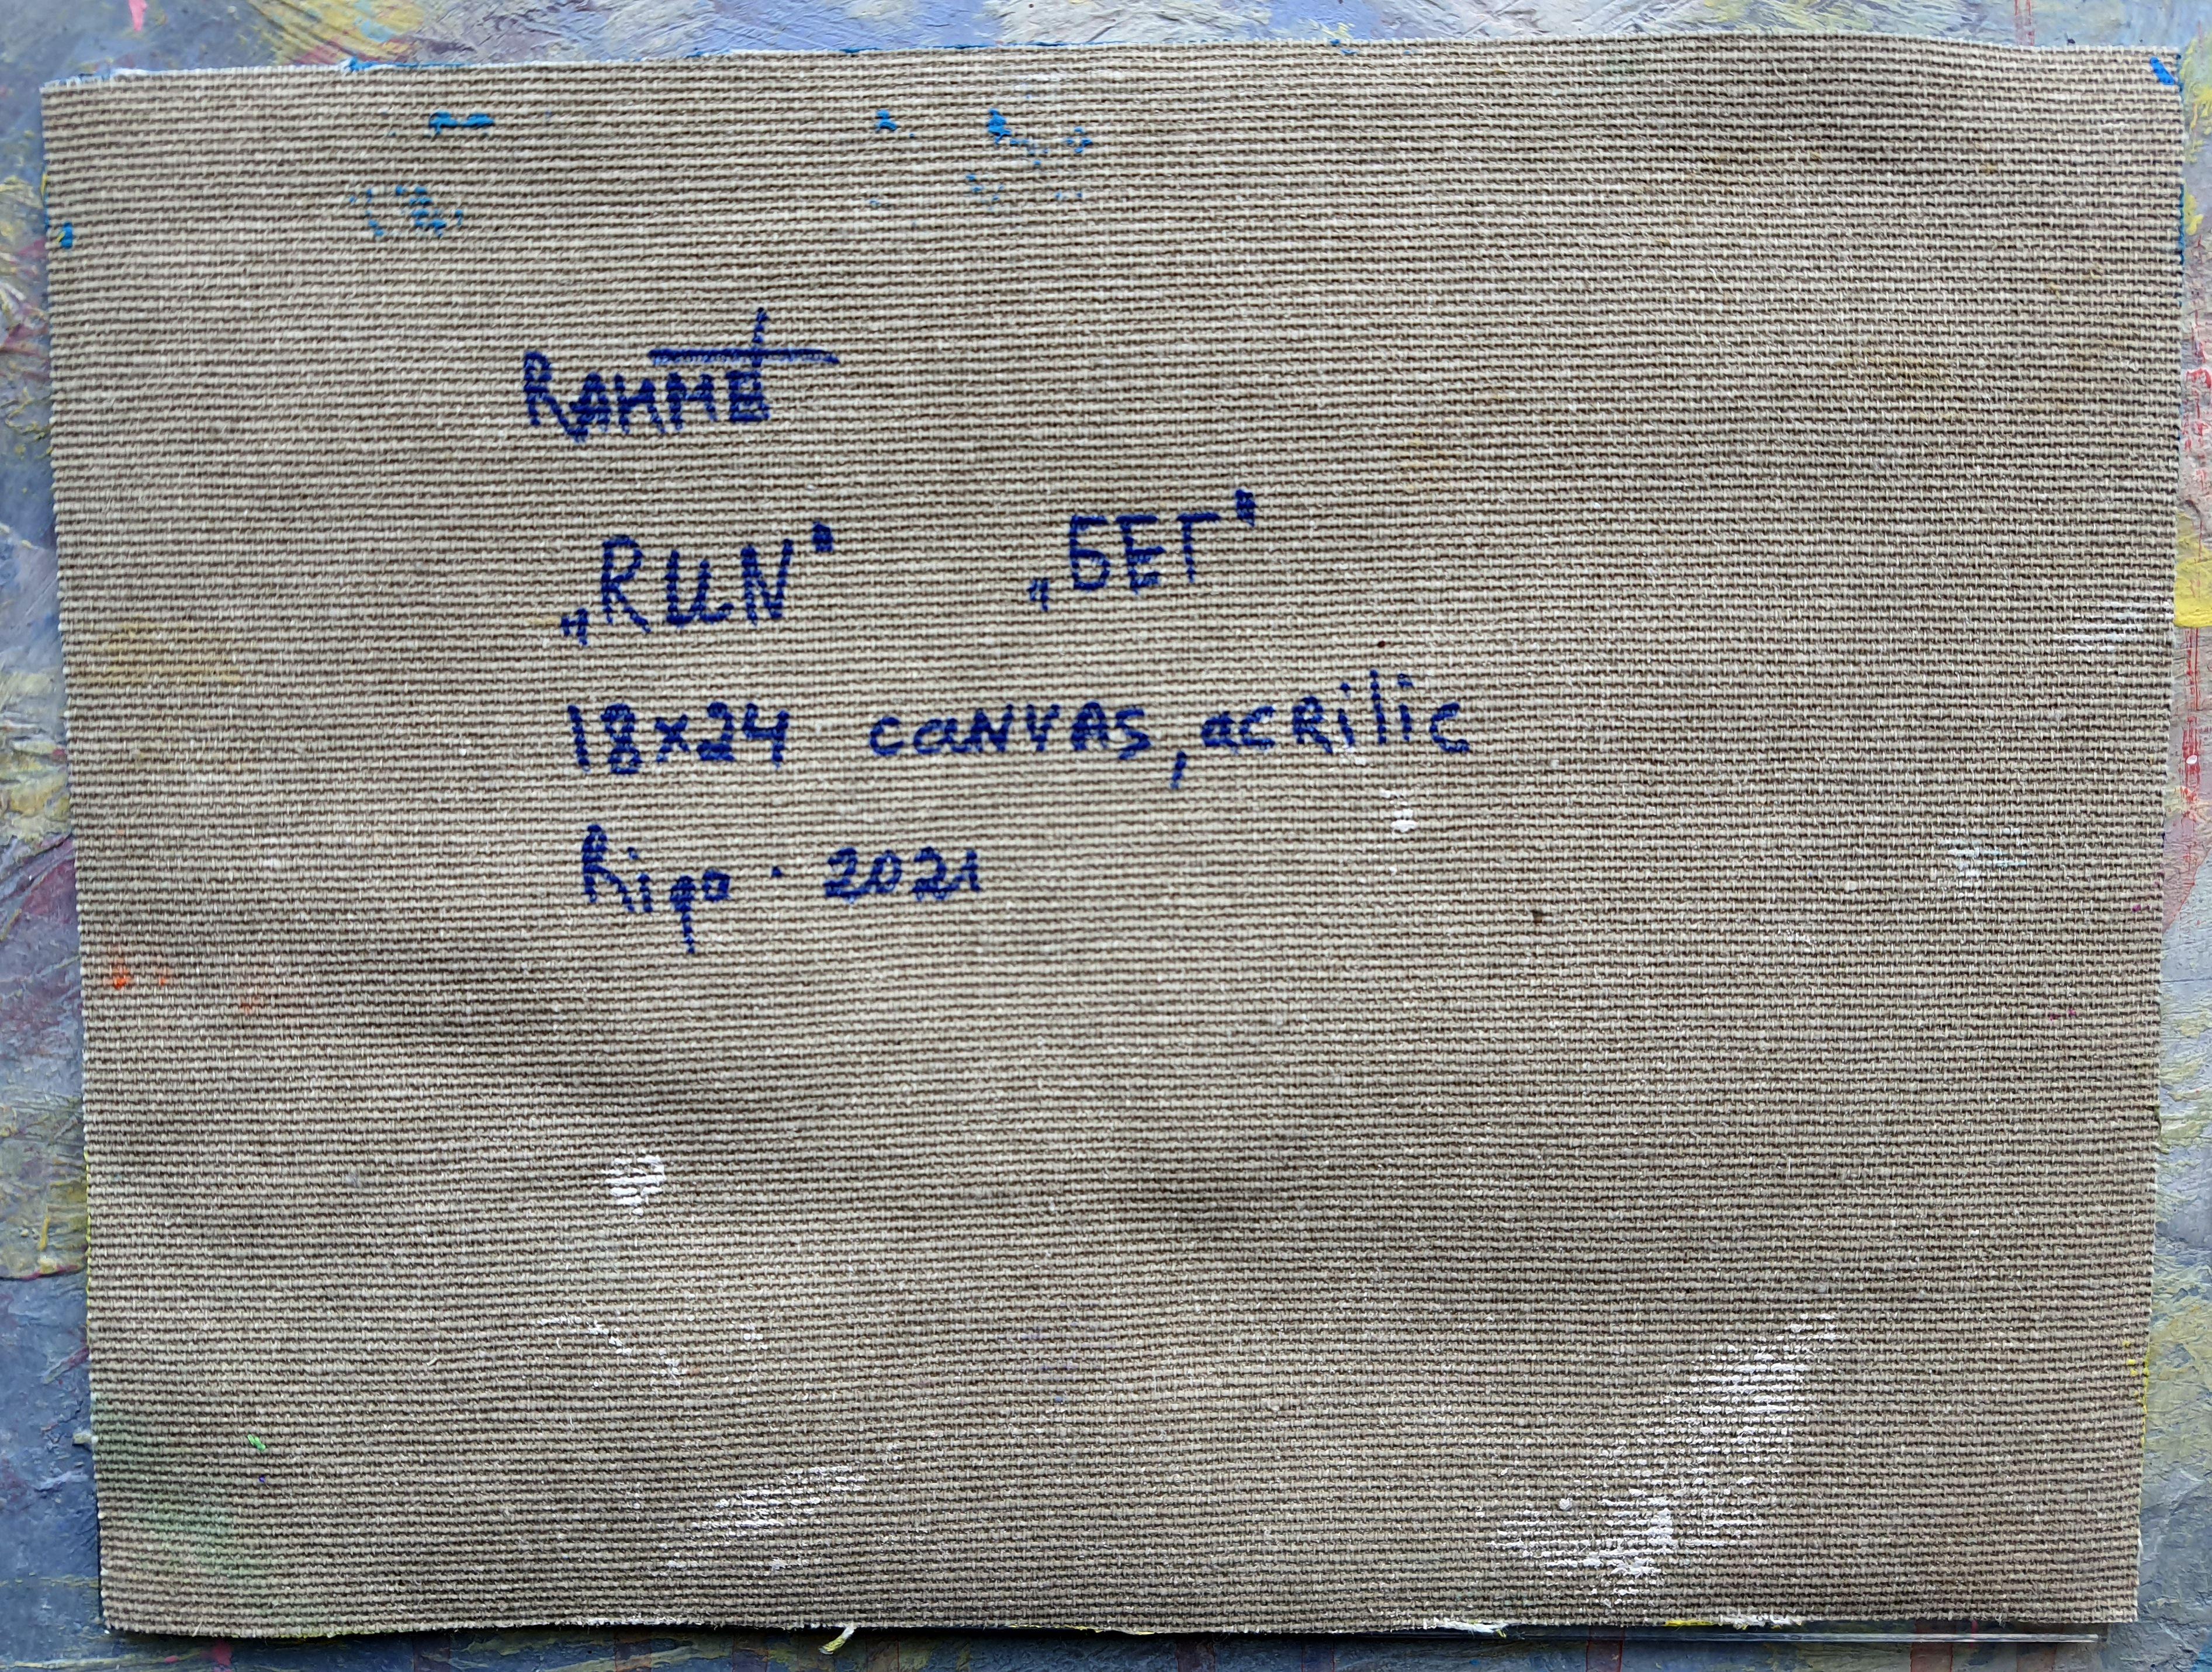 RAHMET
„RUN" „БЕГ"
18x24 canvas, acrilic
Riga · 2021